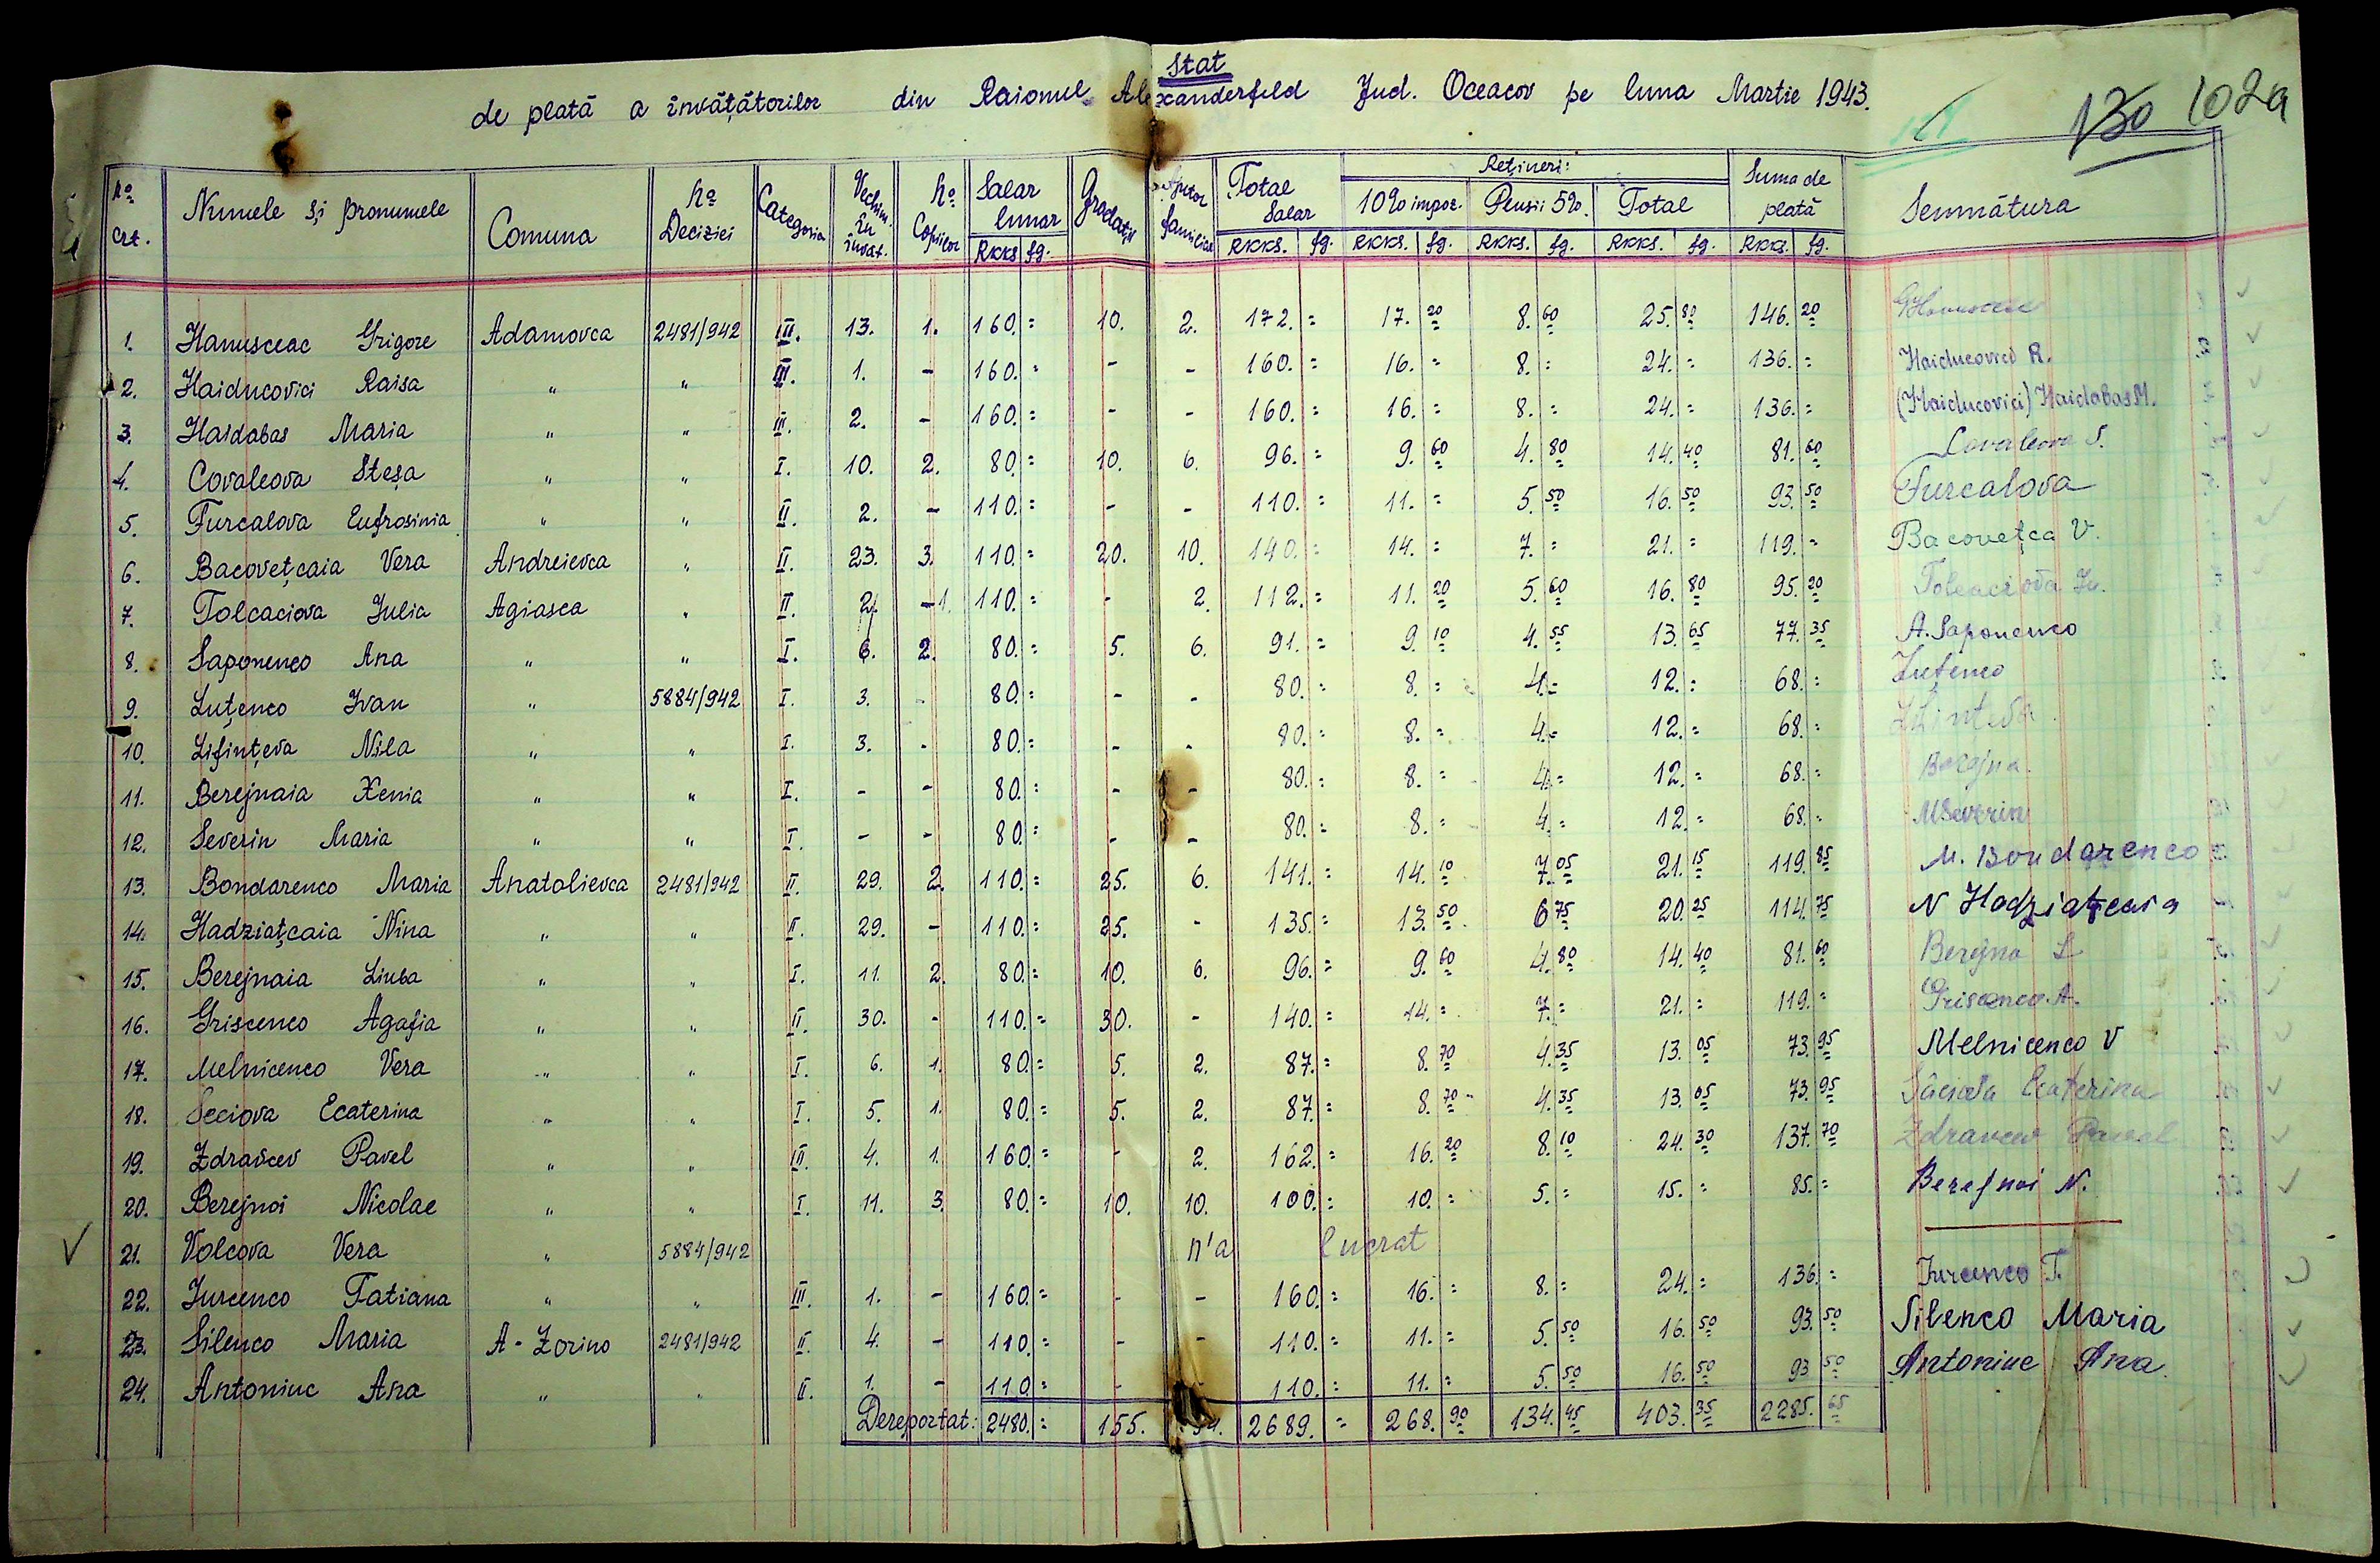 Stat
de plată a învățătorilor din Raionul Alexanderfeld Jud. Oceacov pe luna Martie 1943.
130 102a
No crt. Numele și pronumele Comuna No Deciziei Categoria Vechim. în învăț. No Copiilor Salar lunar Gradații Ajutor familiar Total Salar Rețineri: Suma de plată Semnătura
10% impoz. Pensii 5%. Total
RKKS fg. RKKS. fg. RKKS. fg. RKKS. fg. RKKS. fg. RKKS. fg.
1. Hanusceac Grigore Adamovca 2481/942 III. 13. 1. 160.= 10. 2. 172.= 17.20 8.60 25.80 146.20
2. Haiducovici Raisa " " III. 1. - 160.= - - 160.= 16.= 8.= 24.= 136.= Haiducovici R.
3. Haidabas Maria " " III. 2. - 160.= - - 160.= 16.= 8.= 24.= 136.= (Haiducovici) Haidabas M.
4. Covaleova Steșa " " I. 10. 2. 80.= 10. 6. 96.= 9.60 4.80 14.40 81.60 Covaleova S.
5. Furcalova Eufrosinia " " II. 2. - 110.= - - 110.= 11.= 5.50 16.50 93.50 Furcalova
6. Bacovețcaia Vera Andreievca " II. 23. 3. 110.= 20. 10. 140.= 14.= 7.= 21.= 119.= Bacovețca V.
7. Tolcaciova Julia Agiasca " II. 2. -1. 110.= - 2. 112.= 11.20 5.60 16.80 95.20 Tolcaciova Iu.
8. Saponenco Ana " " I. 6. 2. 80.= 5. 6. 91.= 9.10 4.55 13.65 77.35 A. Saponenco
9. Luțenco Ivan " 5884/942 I. 3. - 80.= - - 80.= 8.= 4.= 12.= 68.= Luțenco
10. Lifințeva Nila " " I. 3. - 80.= - - 80.= 8.= 4.= 12.= 68.=
11. Berejnaia Xenia " " I. - - 80.= - - 80.= 8.= 4.= 12.= 68.= Berejna
12. Severin Maria " " I. - - 80.= - - 80.= 8.= 4.= 12.= 68.= M Severin
13. Bondarenco Maria Anatolievca 2481/942 II. 29. 2. 110.= 25. 6. 141.= 14.10 7.05 21.15 119.85 M. Bondarenco
14. Hadziațcaia Nina " " II. 29. - 110.= 25. - 135.= 13.50 6.75 20.25 114.75 N Hadziațcaia
15. Berejnaia Liuba " " I. 11. 2. 80.= 10. 6. 96.= 9.60 4.80 14.40 81.60 Berejna L
16. Griscenco Agafia " " II. 30. - 110.= 30. - 140.= 14.= 7.= 21.= 119.= Griscenco A.
17. Melnicenco Vera " " I. 6. 1. 80.= 5. 2. 87.= 8.70 4.35 13.05 73.95 Melnicenco V
18. Seciova Ecaterina " " I. 5. 1. 80.= 5. 2. 87.= 8.70 4.35 13.05 73.95 Ecaterina
19. Zdravcev Pavel " " III. 4. 1. 160.= - 2. 162.= 16.20 8.10 24.30 137.70 Zdravcev Pavel
20. Berejnoi Nicolae " " I. 11. 3. 80.= 10. 10. 100.= 10.= 5.= 15.= 85.= Berejnoi N.
21. Volcova Vera " 5884/942 n'a lucrat
22. Jurcenco Tatiana " " III. 1. - 160.= - - 160.= 16.= 8.= 24.= 136.= Jurcenco T.
23. Silenco Maria A-Zorino 2481/942 II. 4. - 110.= - - 110.= 11.= 5.50 16.50 93.50 Silenco Maria
24. Antoniuc Ana " " II. 1. - 110.= - - 110.= 11.= 5.50 16.50 93.50 Antoniuc Ana
Dereportat: 2480.= 155. 54. 2689.= 268.90 134.45 403.35 2285.65